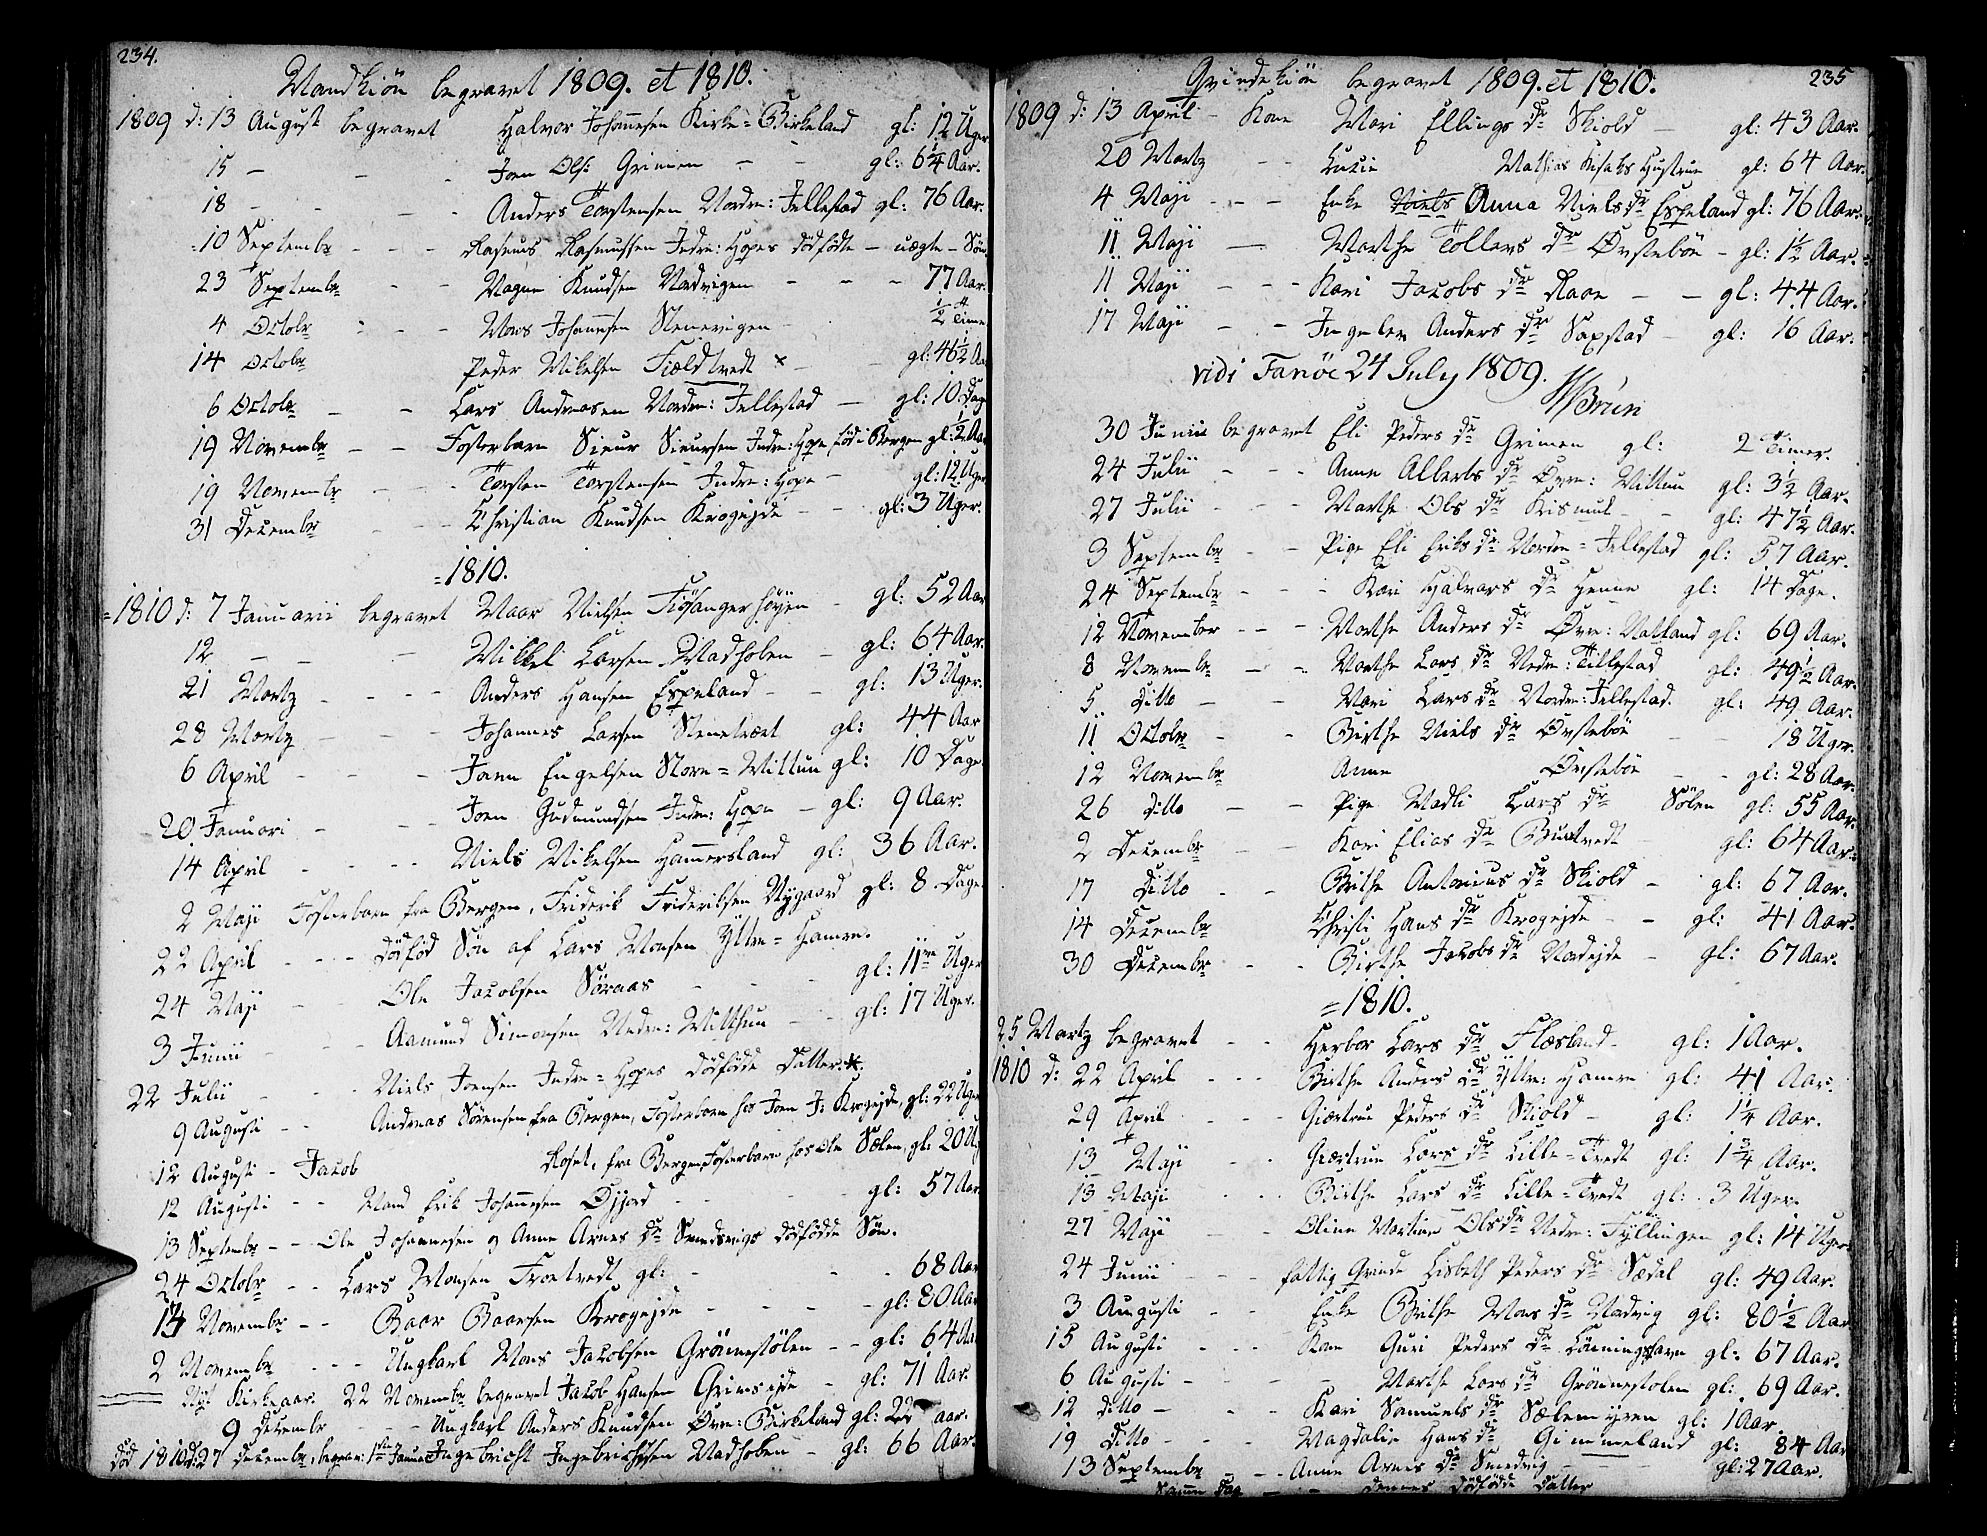 234.
Mandkiön begravet 1809. et 1810.
1809 d: 13 August begravet Halvor Johannesen Kirke=Birkeland gl: 12 Uger
15 - - - Joen Ols: Grimen - - gl: 6 1/4 Aar.
18 - - - Anders Torstensen Nordre: Jellestad gl: 76 Aar.
10 Septembr - - Rasmus Rasmussen Indre: Hopes dödfödte - uægte - Sön
23 Septembr - - Magne Knudsen Nordvigen - - - 77 Aar.
4 Octobr - - - Mons Johannesen Stenevigen - 1/2 Time
14 Octobr Peder Mikelsen Fieldtvedt x - gl: 46 1/2 Aar
6 Octobr - - Lars Andreasen Nordre: Jellestad - gl: 10 Dage
19 Novembr - - Fosterbarn Siur Siursen Indre: Hope föd i Bergen gl: 2 1/2 Aar
19 Novembr - - - Torsten Torstensen Indre: Hope - gl: 12 Uger
31 Decembr - - Christian Knudsen Krogejde - - gl: 3 Uger.
=1810.
=1810 d: 7 Januarii begravet Maar Nielsen Fiösangerhöyen - gl: 52 Aar
12 - - - Mikkel Larsen Madholen - gl: 64 Aar.
21 Martz - - - Anders Hansen Espeland - - gl: 13 Uger.
28 Martz - - - Johannes Larsen Stenetræet gl: 44 Aar
6 April - - - Jann Engelsen Store=Milltun gl: 10 Dage
20 Januari - - - Joen Gudmundsen Indre: Hope - gl: 9 Aar.
14 April - - - Niels Mikelsen Hamersland gl: 36 Aar.
2 Maji Fosterbarn fra Bergen, Friderik Frideriksen Nygaard gl: 8 Dage
22 April - - - dödföd Sön af Lars Monsen Ÿttre=Hamre.
24 Maji - - Ole Jacobsen Söraas - - - gl: 11 Uger
3 Junii - - - Aamund Simonsen Nedre: Milthun - - gl: 17 Uger.
22 Julii - - Niels Joensen Indre=Hopes dödfödde Datter.*.
9 Augusti - - Andreas Sörensen fra Bergen, Fosterbarn hos Joen J: Krogejde, gl: 22 Uger
12 Augusti - Jacob Roset, fra Bergen Fosterbarn hos Ole Sælen, gl: 20 U:
12 Augusti - - Mand Erik Johannesen Öjjord - - - gl: 57 Aar.
13 Septembr - - Ole Johannesen og Anne Arnes dr Smedsvigs dödfödde Sön.
24 Octobr - - Lars Monsen Trætvedt gl: - - - 68 Aar
13 Novembr - - Baar Baarsen Krogejde - - - - gl: 80 Aar
2 Novembr - - - Ungkarl Mons Jacobsen Grönnestölen - - gl: 64 Aar
Nyt Kirkeaar. 22 Novembr begravet Jacob Hansen Grimsejde - gl: 71 Aar.
9 Decembr - - - Ungkarl Anders Knudsen Övre: Birkeland gl: 22 aar.
död 1810 d: 27 Decembr, begrav: 1ste Januarii Ingebricht Ingebrichtsen Madholen - gl: 66 Aar.
235
Qvindekiön begravet 1809. et 1810.
1809 d: 13 April - Kone Mari Ellings dr Skiold - gl: 43 Aar.
20 Martz - - Lucie Mathias Hustrue gl: 64 Aar.
4 Maji - - - Enke Anna Niels dr Espeland gl: 76 Aar.
11 Maji - Marthe Tollevs dr Övstebön - gl: 1 1/2 Aar.
11 Maji - - - Kari Jacobs dr Raae - - gl: 44 Aar.
17 Maji - - Ingelev Anders dr Sæxstad - gl: 16 Aar.
vidi Fanöe 24 July 1809.
Brun
30 Junii begravet Eli Peders dr Grimen gl: 2 Timer.
24 Julii - - - Anne Alberts dr Övre: Milltun gl: 3 1/2 Aar.
27 Julii - - - Marthe Ols dr Krismul - - gl: 47 1/2 Aar.
3 Septembr - - Pige Eli Eriks dr Nordre=Jellestad gl: 57 Aar.
24 Septembr - - - Kari Halvors dr Henne gl: 14 Dage.
12 November - - - Marthe Anders dr Övre: Natland gl: 69 Aar.
8 Novembr - - Marthe Lars dr Nedre: Tillestad gl: 49 1/2 Aar.
5 ditto - - Mari Lars dr Nordre: Jellestad. gl: 49 Aar.
11 Octobr - - Birthe Niels dr Övstebön - - 18 Uger.
12 Novembr Anne Övstebön - - gl: 28 Aar.
26 ditto - - Pige Madli Lars dr Sölen gl: 55 Aar.
2 Decembr - - Kari Elias dr Birketvedt gl: 64 Aar.
17 Ditto - - Brithe Antonius dr Skiold - gl: 67 Aar.
14 Decembr Christi Hans dr Krogejde - - gl: 41 Aar.
30 Decembr - - Birthe Jacobs dr Nordejde - gl: 67 Aar.
=1810.
25 Martz begravet - - Herbor Lars dr Flæsland - gl: 1 Aar.
1810 d: 22 April - - - Birthe Anders dr Yttre: Hamre gl: 41 Aar.
29 April - - - Giertrue Peders dr Skiold - gl: 1 1/4 Aar.
13 Maji - - Giertrue Lars dr Lille=Tvedt gl: 1 3/4 Aar.
13 Maji - - - Birthe Lars dr Lille=Tvedt gl: 3 Uger.
27 Maji - - Oline Martine Ols dr Nedre: Fyllingen gl: 14 Uger.
24 Junii - - - fattig Qvinde Lisbeth Peders dr Sædal gl: 49 Aar.
3 Augusti - - Enke Brithe Mons dr Nordvig gl: 80 1/2 Aar
15 Augusti - - - Kone Guri Peders dr Löiningshavn gl: 67 Aar.
6 Augusti - - - - Marthe Lars dr Grönnestolen gl: 69 Aar.
12 ditto - - - Kari Samuels dr Sælemyren gl: 1 Aar
19 Ditto - - - Magdalie Hans dr Gimmeland gl: 84 Aar
13 Septembr - - - Anne Arnes dr Smedvig - - - gl: 27 Aar.
Samme Dag - - dennes dödfödde Datter